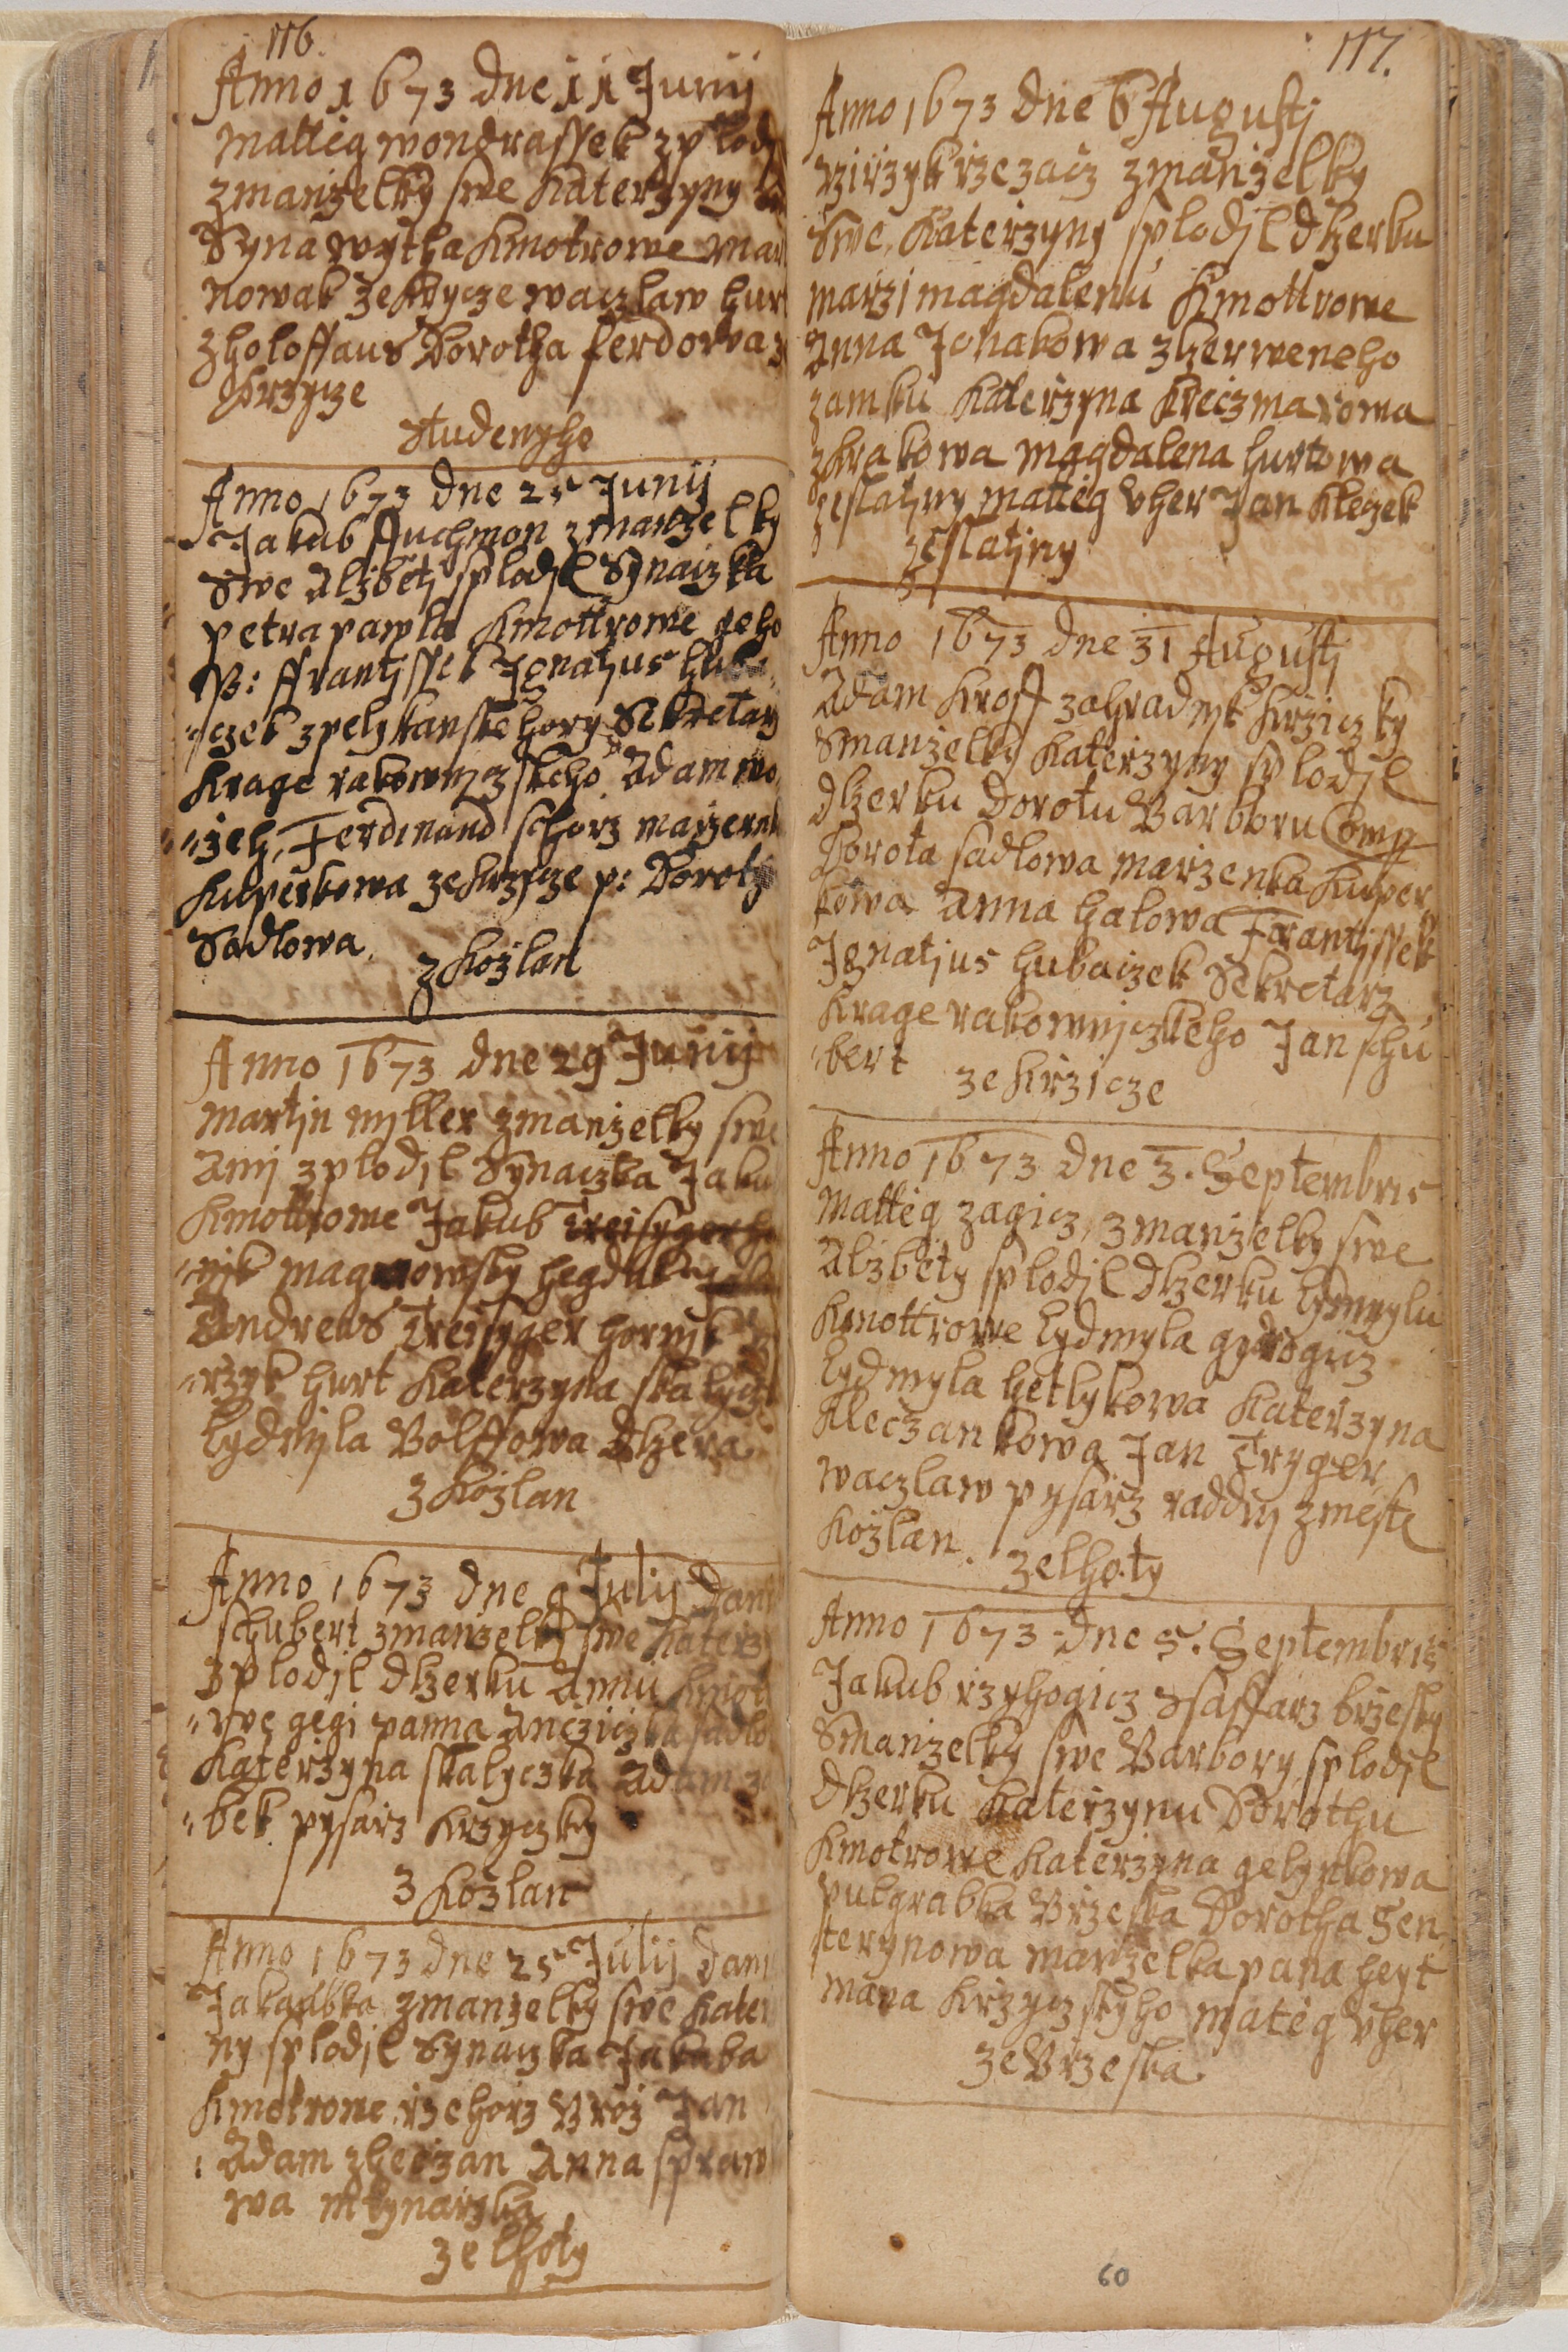 116.
Anno 1673 dne 11 Junij
Mattieg wondrassek zplodj
zmanzelky swe Katerzyny
Syna wytha Kmotrowe Mar
nowak ze Krzycze waczlaw hur
z holoffaus Dorotha ferdowa z
Krzycze
studenyho
Anno 1673 dne 25 Junij
Jakub fuchmon zmanzelky
Swe Alzbetj splodjl Synaczka
petra pawla Kmottrowe geho
P: ffrantjssek Jgnatjus hub
czek zpelzkanske hory Sekretarz
Krage rakownjczskeho Adam wo
"jeh, Ferdinand schorz marzenk
Kuperkowa ze Krzycze p: Dorota
Sadlowa.
z Kozlan
Anno 1673 dne 29 Junij
Martjn myller zmanzelky swe
Anj zplodjl Synaczka Jaku
Kmottrowe Jakub
"njk hegduk
Andreas Treisyger hornjk
"rzyk hurt Katerzyna skalycz
lydmjla Wolffowa dtzera
z Kozlan
Anno 1673 dne 9 Julij Dani
schubert zmanzelky swe Katerz
zplodjl dtzerku Annu Kmot
"rwe gegi panna Ancziczka sadlo
Katerzyna skalyczka Adam
"bek pysarz Krzyczky
z Kozlan
Anno 1673 dne 25 Julij Dani
Jakaubka zmanzelky swe Kater
ny splodjl Synaczka Jakuba
Kmotrowe rzehorz Wroz Jan
: Adam z heczan Anna spraw
wa mlynarzka
ze lhoty
117.
Anno 1673 dne 6 Augustj
rzirzyk rzezacz zmanzelky
Swe Katerzyny splodjl dtzerku
marzi magdalenu Kmottrowe
Anna Jonakowa ztzerweneho
zamku Katerzyna Kreczmarowa
z Krakowa Magdalena hurtowa
zeslatjny mattieg Vher Jan Kleczek
zeslatjny
Anno 1673 dne 31 Augustj
Adam Kroff zahradnjk Krziczky
Smanzelky Katerzyny splodjl
dtzerku Dorotu Barboru Comp
Dorota sadlowa marzenka Kuper
kowa Anna halowa Frantjssek
Jgnatjus hubaczek Sekretarz
Krage rakownjczkeho Jan schu
"bert ze Krzicze
Anno 1673 dne 3. Septembris
Mattieg zagicz, zmanzelky swe
Alzbety splodjl dtzerku lydmylu
Kmottrowe lydmyla
lydmyla hetlykowa Katerzyna
Kleczankowa Jan Tryger
waczlaw pysarz raddnj zmeste
Kozlan. ze lhoty
Anno 1673 dne 5. Septembris
Jakub rzyhogicz Ssaffarz brzesky
Smanzelky swe Barbory splodjl
dtzerku Katerzynu Dorothu
Kmotrowe Katerzyna gelynkowa
pulgrabka Brzeska Dorotha Sen
terynowa manzelka pana heyt
mana Krzyczskyho matieg Vher
ze Brzeska.
60